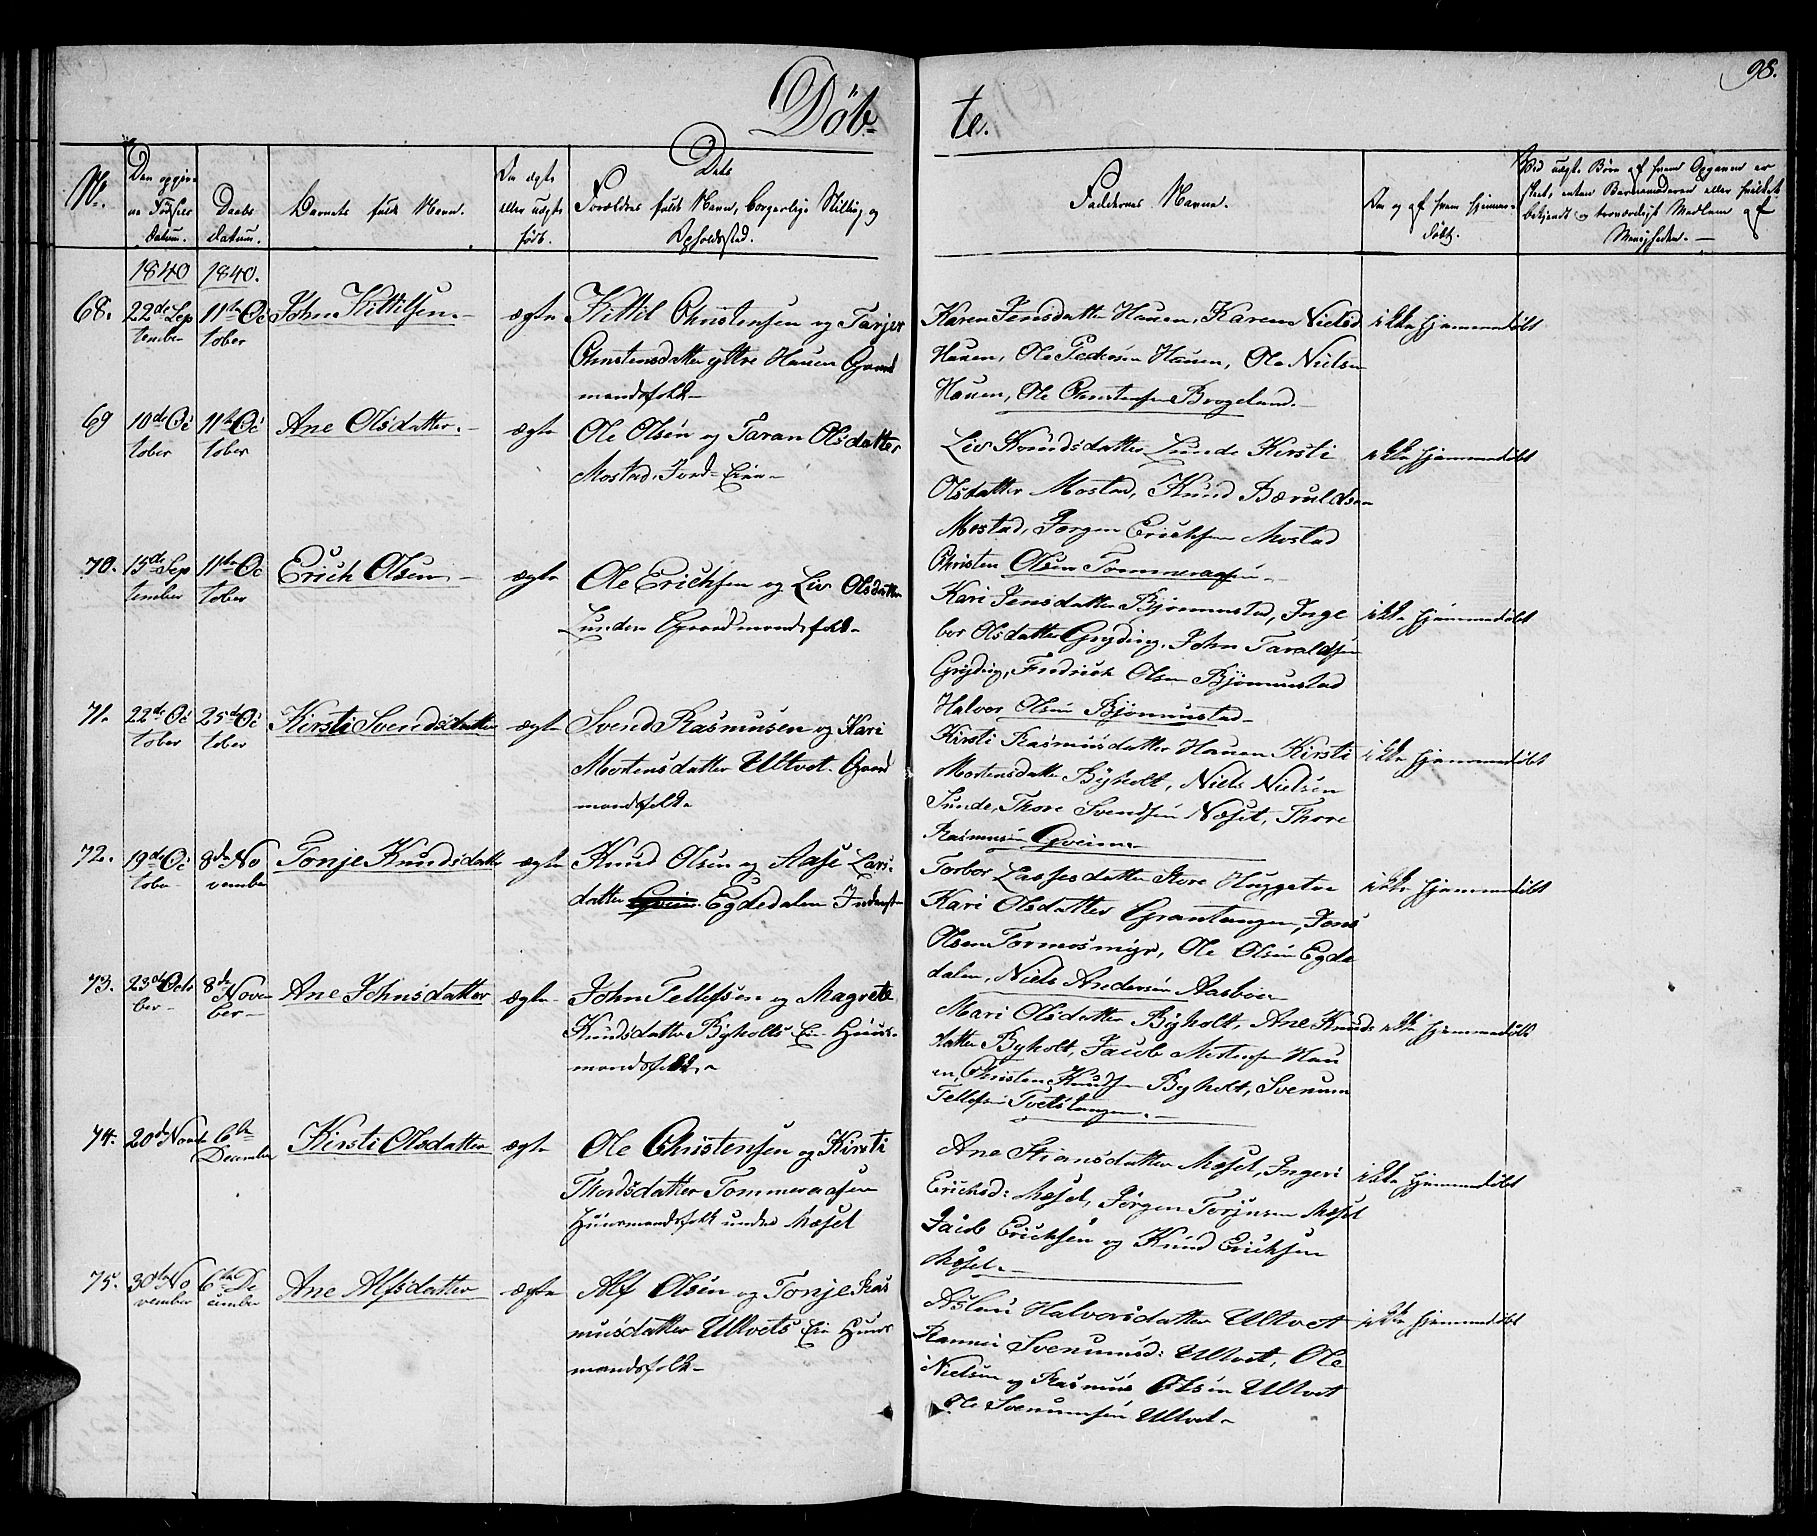 98.
Döb-
te.
No.
Den opgiv-
ne Fødsels
Datum.
Daabs
Datum.
Barnets fulde Navn.
Om ægte
eller uægte
født.
Dets
Forældres fulde Navn, borgerlige Stilling og
Opholdssted.
Faddernes Navne.
Om og af hvem hjemme-
døbt.
Ved uægte Børn af hvem Opgaven er
skeet, enten Barnemoderen eller hvilket
bekjendt og troværdigt Medlem af
Menigheden.
1840
1840.
68.
22de Sep
tember
11te Oc
tober
John Kittilsen.
ægte
Kittil Christensen og Tarjer
Christensdatter yttre Hauen Gaard
mandsfolk
Karen Jensdatter Hauen, Karen Nielsd
Hauen, Ole Pedersen Hauen, Ole Nielsen
Hauen, Ole Christensen Brogeland.
ikke hjemmedøbt
69
10de Oc
tober
11te Oc
tober
Ane Olsdatter.
ægte
Ole Olsen og Taran Olsdatter
Mostad Jord-Eiere
Liv Knudsdatter Lunde Kirsti
Olsdatter Mostad, Knud Bæruldsen
Mostad, Jørgen Erichsen Mostad
Christen Olsen Tommeraasen.
ikke hjemmedøbt
70.
15de Sep
tember
11te Oc
tober
Erich Olsen
ægte
Ole Erichsen og Liv Olsdatter
Lunden Gaardmandsfolk
Kari Jensdatter Bjørmustad, Inge
bor Olsdatter Gryding, John Taraldsen
Gryding, Fredrich Olsen Bjørmustad
Halvor Olsen Bjørmustad
ikke hjemmedøbt
71.
22de Oc
tober
25de Oc
tober
Kirsti Svendsdatter
ægte
Svend Rasmusen og Kari
Mortensdatter Ultvet Gaard
mandsfolk
Kirsti Rasmusdatter Hauen Kirsti
Mortensdatter Byholt, Niels Nielsen
Sunde, Thore Svendsen Næset, Thore
Rasmusen Gveine
ikke hjemmedøbt
72.
19de Oc
tober
8de No
vember
Tonje Knudsdatter
ægte
Knud Olsen og Aase Lars-
datter Egdedalen Inderst
Torbor Lassesdatter Store Huggetve
Kari Olsdatter Grantangen, Jens
Olsen Tormosmyr, Ole Olsen Egde
dalen, Niels Andersen Aasbøe
ikke hjemmedøbt
73.
23de Octo
ber
8de Novem
ber
Ane Johnsdatter
ægte
John Tellefsen og Magrete
Knudsdatter Byholts Eie Huus-
mandsfolk
Mari Olsdatter Byholt, Ane Knuds
datter Byholt, Jacob Mortensen Hau
en, Christen Knudsen Byholt, Svenum
Tellefsen Tvetstangen.
ikke hjemmedøbt
74.
20de Novb
6te
December
Kirsti Olsdatter
ægte
Ole Christensen og Kirsti
Thordsdatter Tommeraasen
Huusmandsfolk under Mæsel
Ane Stiansdatter Mæsel, Ingeri
Erichsd: Mæsel, Jørgen Torjusen Mæsel
Jacob Ericksen og Knud Ericksen
Mæsel.
ikke hjemmedøbt
75.
30te No
vember
6te De
cember
Ane Alfsdatter
ægte
Alf Olsen og Tonje Ras
musdatter Ultvets Eie Huus
mandsfolk
Aslau Halvorsdatter Ultvet
Ranni Svenumsd: Ultvet, Ole
Nielsen og Rasmus Olsen Ultvet
Ole Svenumsen Ultvet
ikke hjemmedøbt